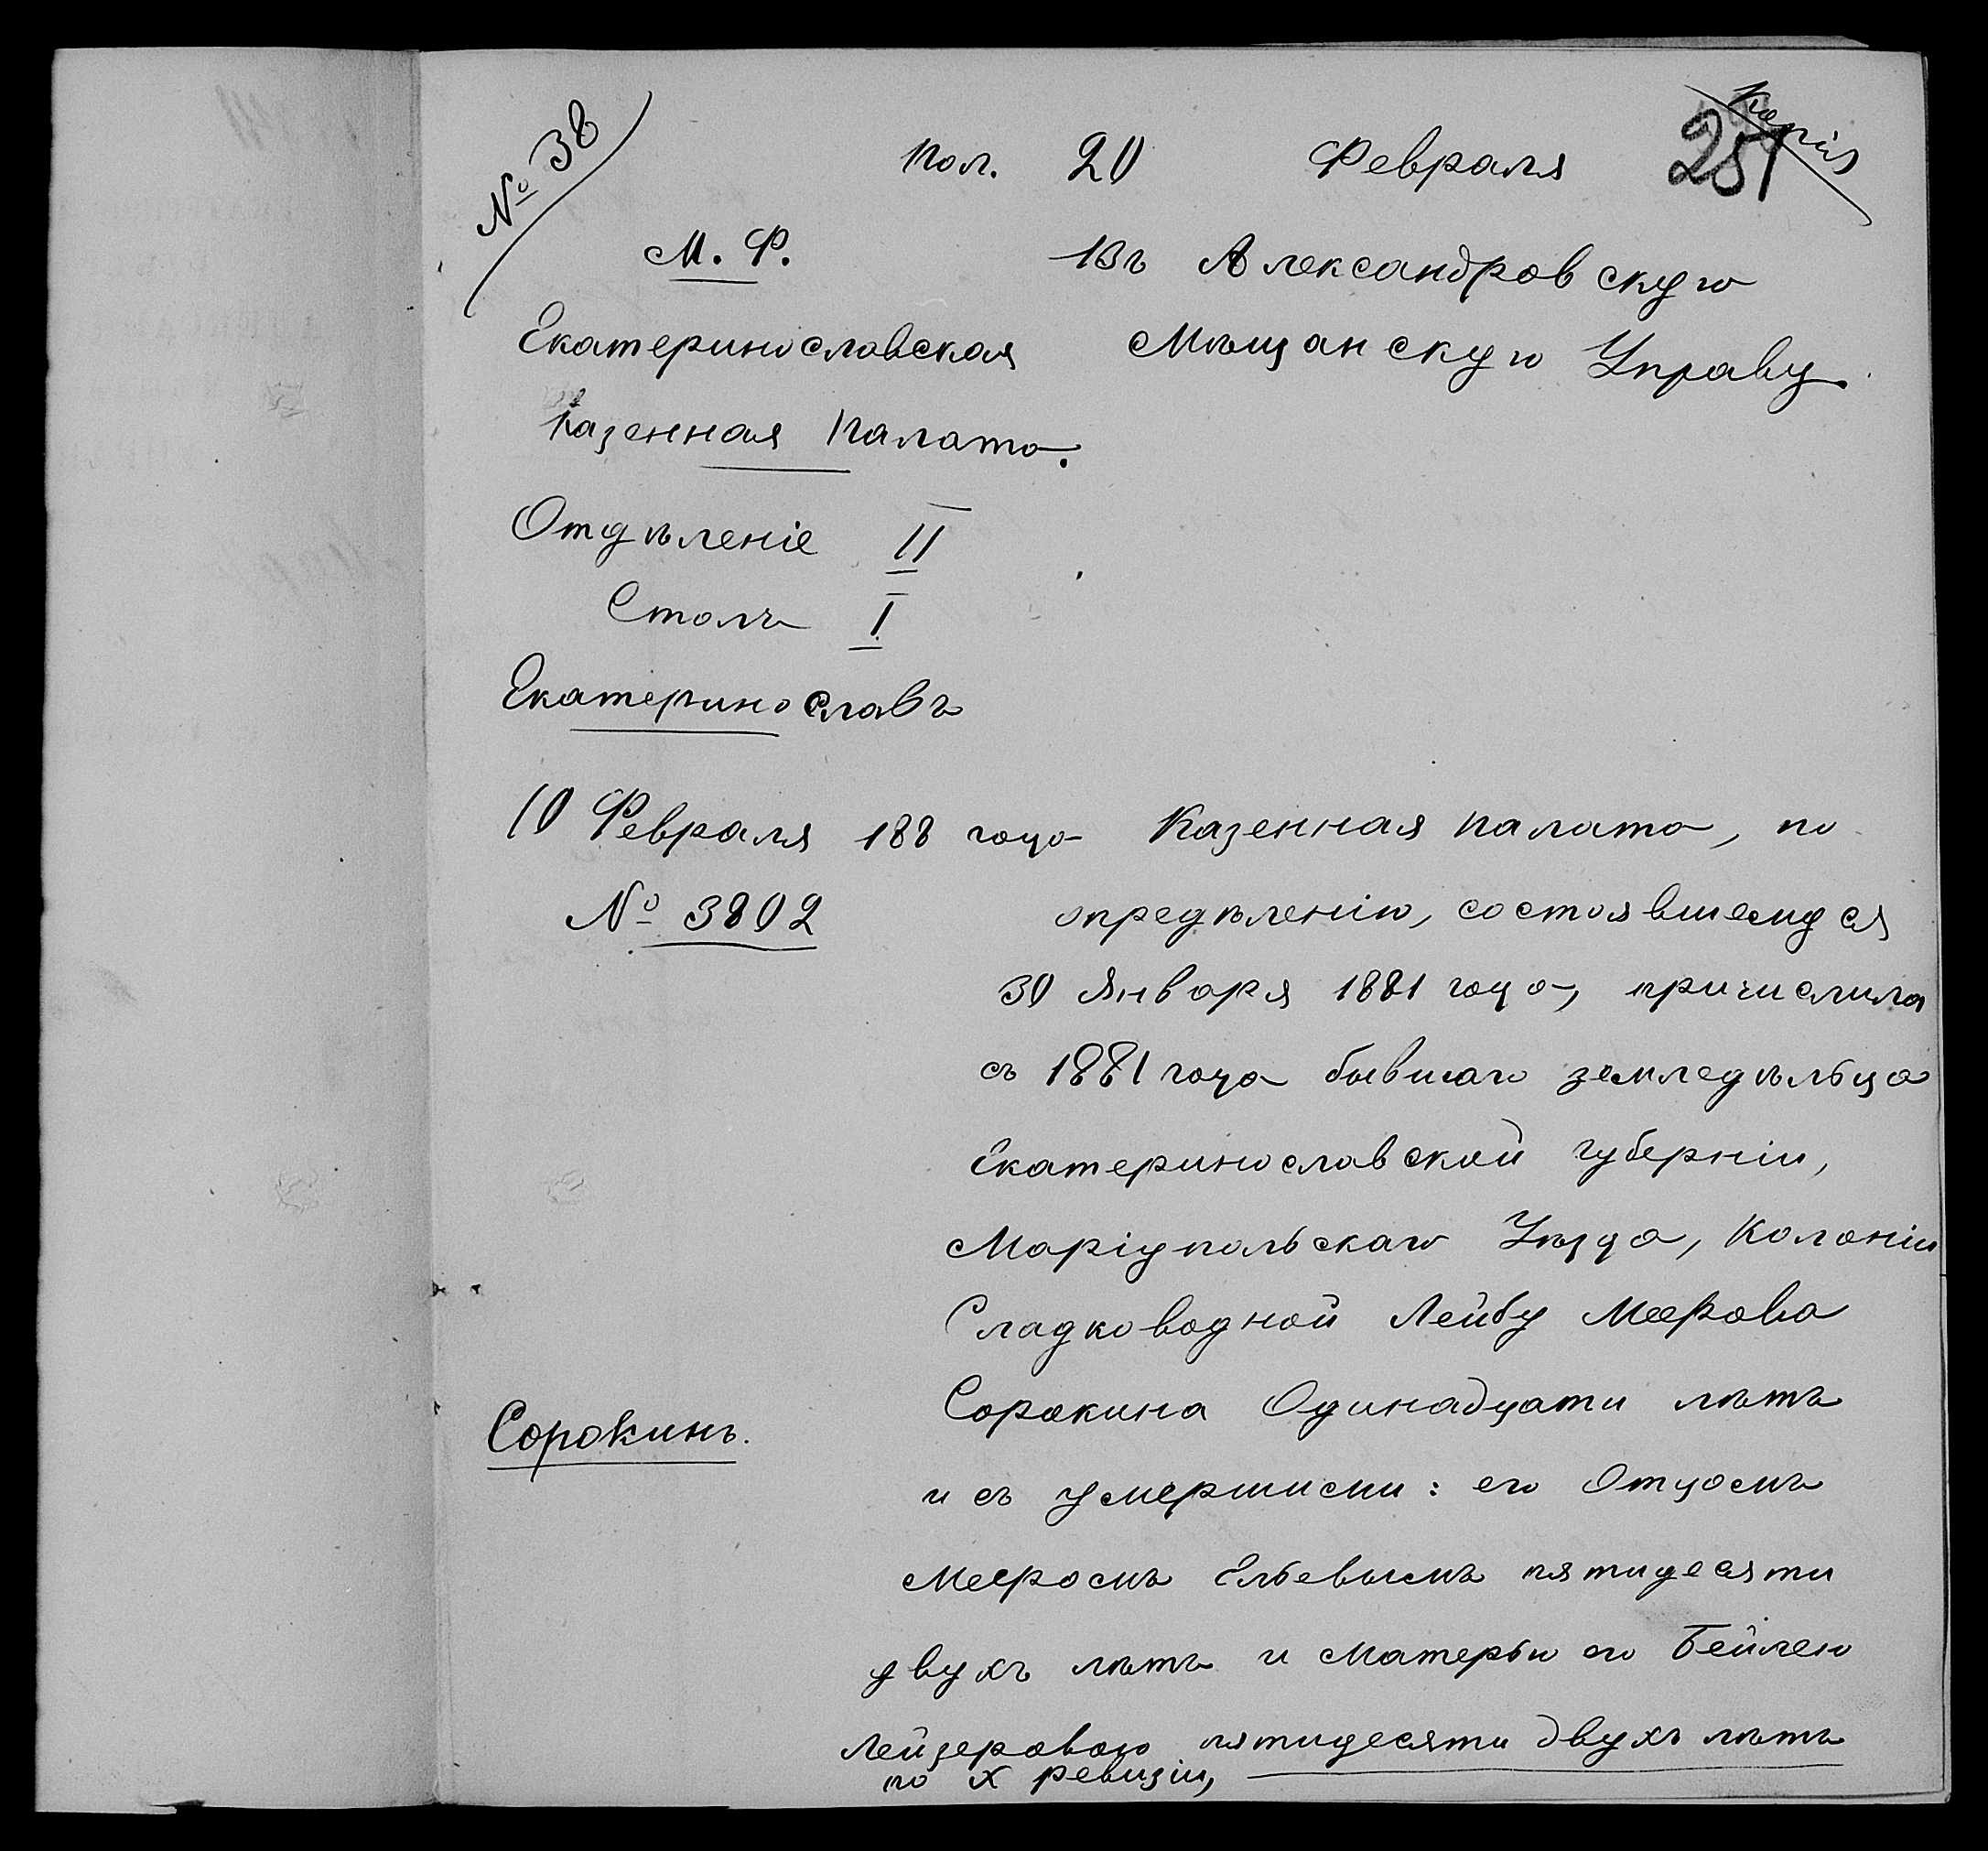 № 38
Пол. 20 Февраля
Копія
251
М. Ф.
Екатеринославская
Казенная Палата.
Отдѣленіе II
Столъ I
Екатеринославъ
10 Февраля 188 года
№ 3802
Въ Александровскую
Мѣщанскую Управу.
Казенная палата, по
опредѣленію, состоявшемуся
30 Января 1881 года, причислила
съ 1881 года бывшаго земледѣльца
Екатеринославской губерніи,
Маріупольскаго Уѣзда, Колоніи
Сладководной Лейбу Меерова
Сорокина Одинадцати лѣтъ
и съ умершими: его Отцомъ
Мееромъ Ельевымъ пятидесяти
двухъ лѣтъ и Матерью его Бейлею
Лейзеровою пятидесяти двухъ лѣтъ
по X ревизіи,
Сорокинъ.